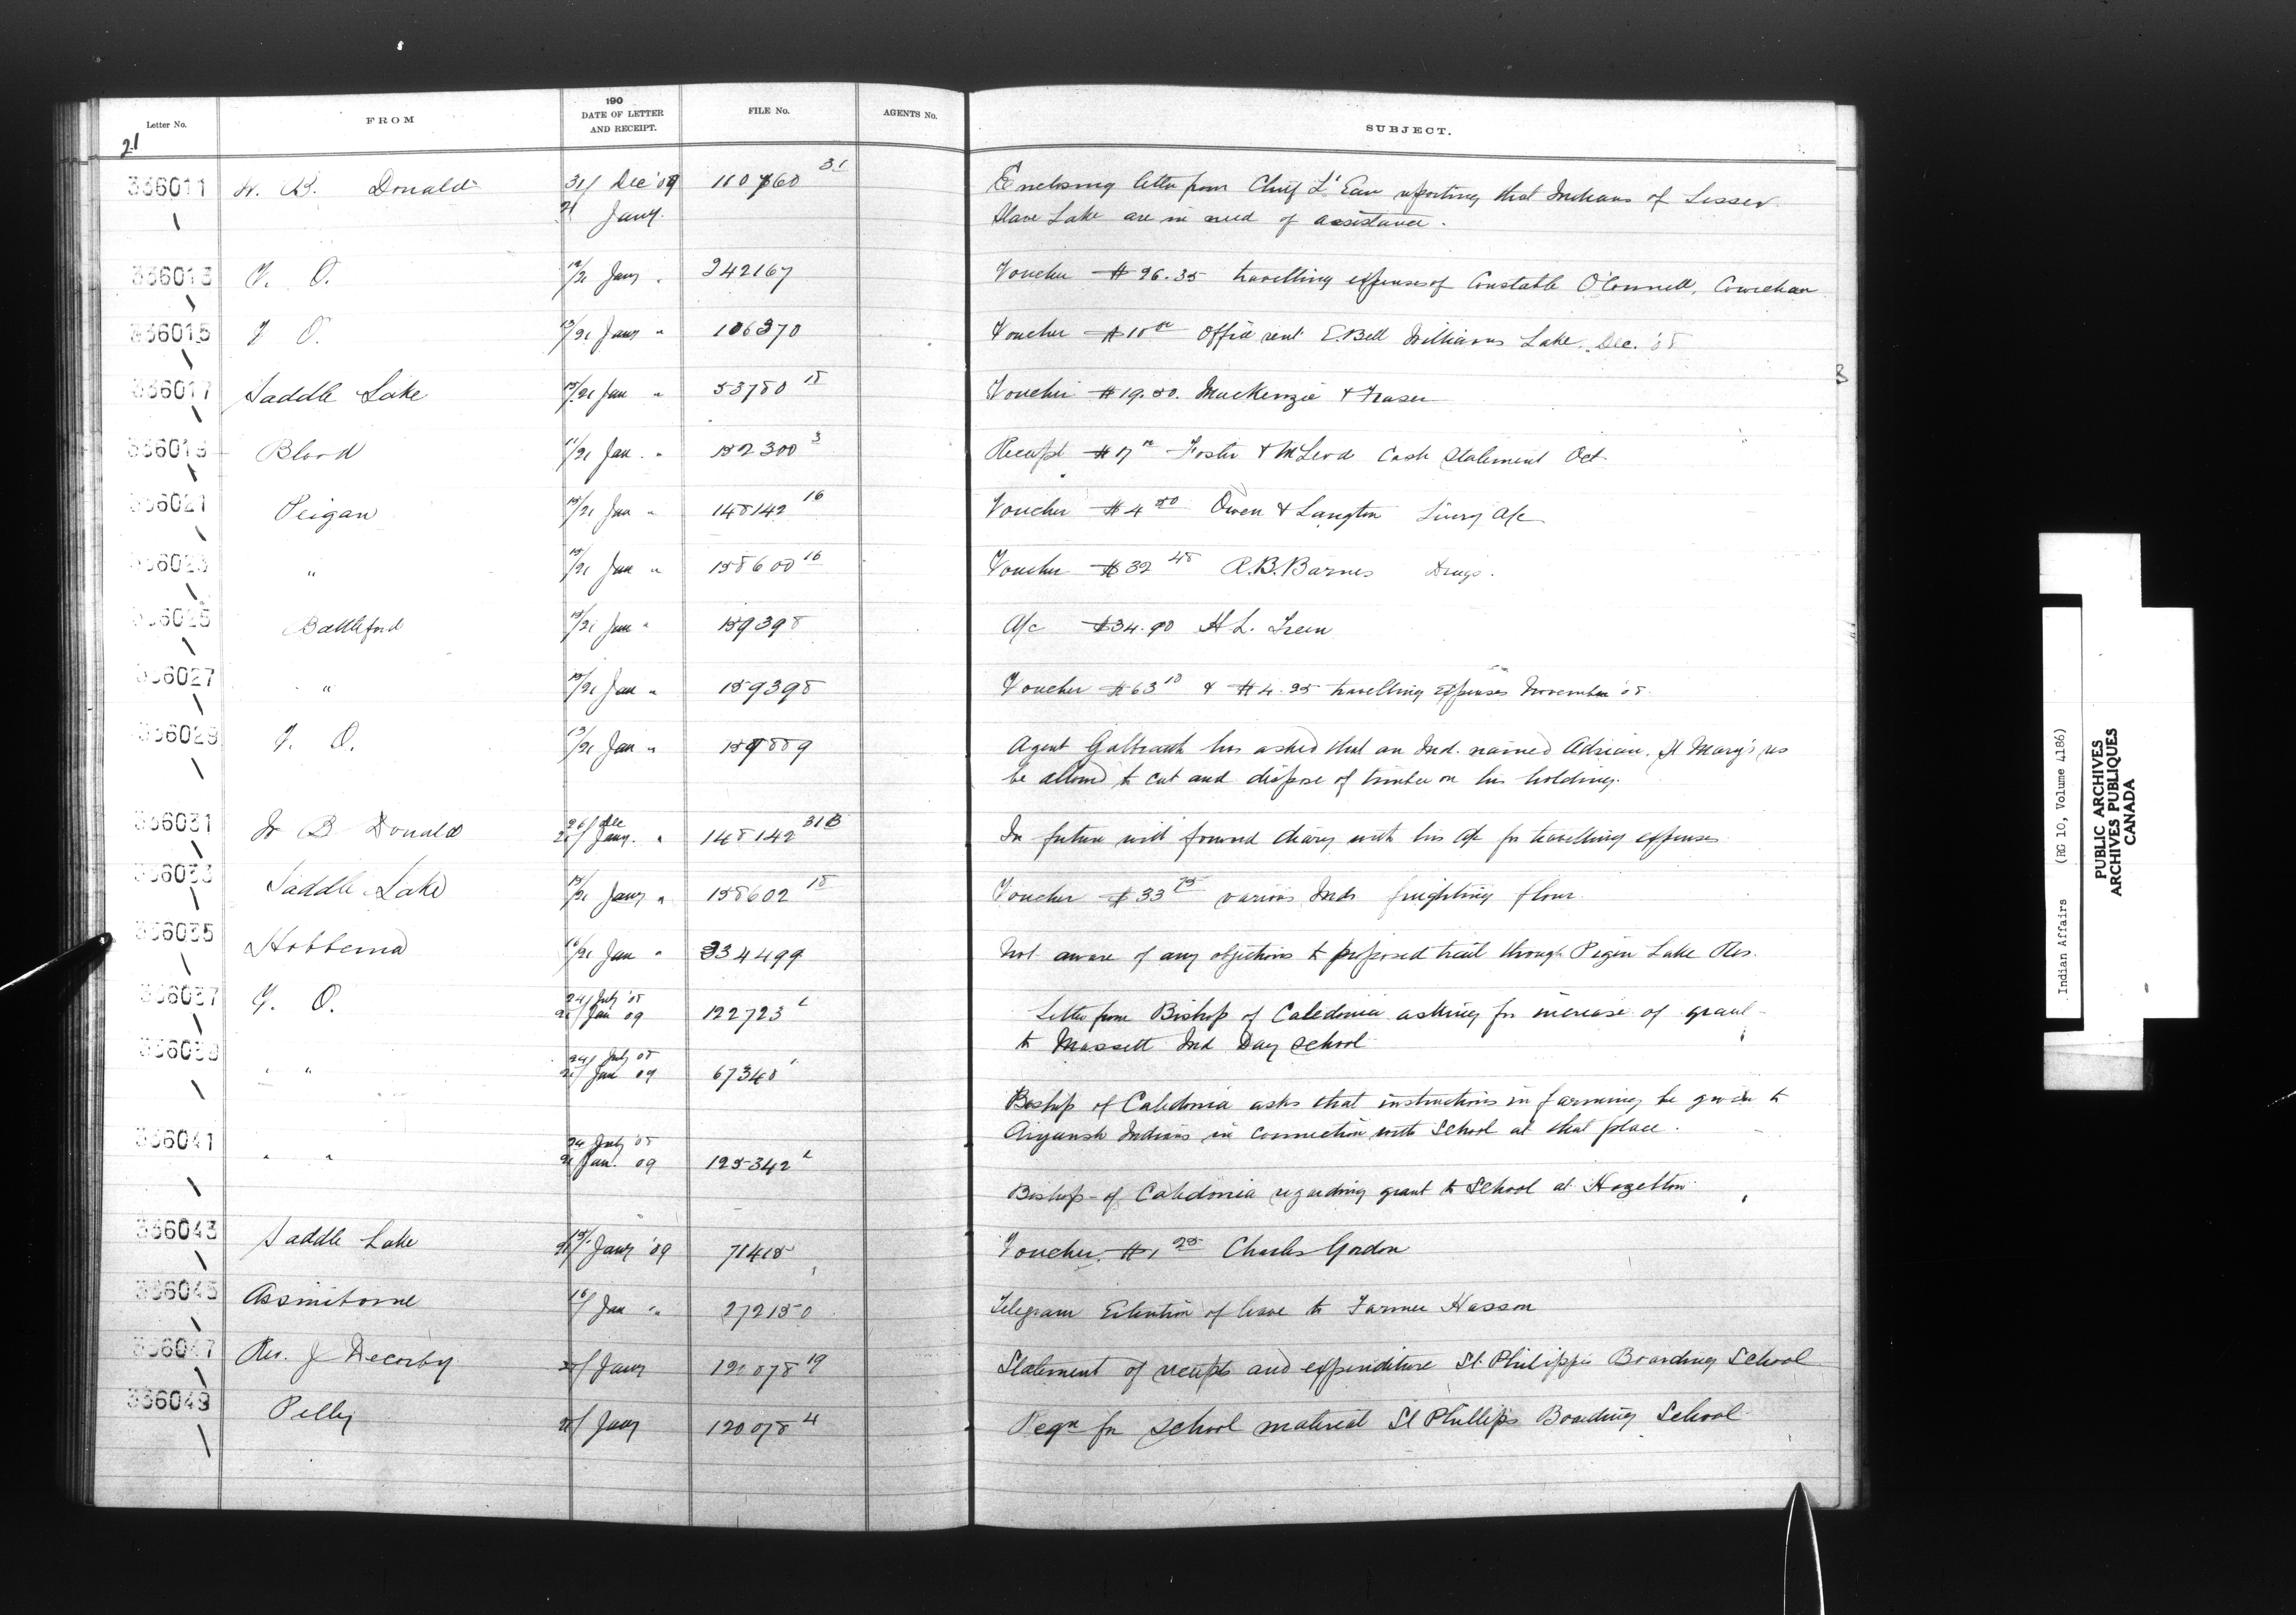 190
Letter No. FROM DATE OF LETTER AND RECEIPT. FILE No. AGENTS No. SUBJECT.
21
336011 W. B. Donald 31/ Dec '09 110760 31 Enclosing letter from Chief L' Eau reporting that Indians of Lesser
21 Jany. Slave Lake are in need of assistance.
336013 V. O. 12/21 Jany " 242167 Voucher $26.35 travelling expenses of Constable O'Connell, Cowichan
336015 V. O. 13/21 Jany " 106370 Voucher $10 00 Office rent E. Bell Williams Lake. Dec. '08
336017 Saddle Lake 15/21 Jan " 53780 18 Voucher $19.50. MacKenzie & Fraser
336019 Blood 11/21 Jan. " 152300 3 Receipt $7 00 Foster & McLeod Cash Statement Oct
336021 Peigan 15/21 Jan " 148142 16 Voucher $4 50 Owen & Langton Livery a/c
336023 " 15/21 Jan " 158600 16 Voucher $32 45 R. B. Barnes Drugs.
336025 Battleford 15/21 Jan " 159398 a/c $34.90 H L.
336027 " 15/21 Jan " 159398 Voucher $63 10 & $4.25 travelling expenses November '08
336029 V. O. 13/21 Jan " 159889 Agent Galbraith has asked that an Ind. named Adrian, St Mary's res
be allowed to cut and dispose of timber on his holding.
336031 W B Donald 26/ Dec 21/ Jany. " 148142 31B In future will forward diary with his a/c for travelling expenses
336033 Saddle Lake 15/21 Jany " 158602 18 Voucher $33 75 various Inds freighting flour.
336035 Hobbema 16/21 Jan " 334499 Not aware of any objections to proposed trail through Pigeon Lake Res.
336037 V. O. 24/ July '08 21/ Jan 09 122723 1 Letter from Bishop of Caledonia asking for increase of grant
to Massett Ind Day School
336039 " " 24/ July 08 21/ Jan 09 67340 1
Bishop of Caledonia asks that instructions in farming be given to
Aiyansh Indians in connection with School at that place.
336041 " " 24 July 08 21 Jan. 09 125342 1
Bishop of Caledonia regarding grant to School at Hazelton
336043 Saddle Lake 15/21 Jany '09 71415 Voucher $1 25 Charles Gordon
336045 Assiniboine 16/ Jan " 272150 Telegram Extention of leave to Farmer Hasson
336047 Rev. J Decorby 20/ Jany 120078 19 Statement of receipts and expenditure St. Philippi Boarding School
336049 Pelly 20/ Jany 120078 4 Reqn for School material St Phillips Boarding School
Indian Affairs (RG 10, Volume 4186)
PUBLIC ARCHIVES
ARCHIVES PUBLIQUES
CANADA